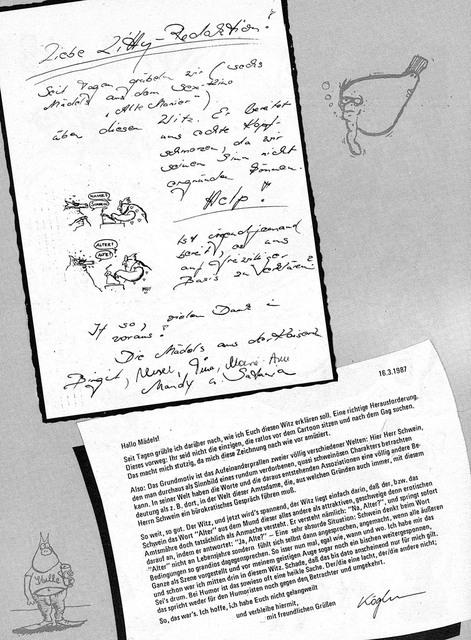 Liebe Zitty-Redaktion!
Seit Tagen grübeln wir (sechs
Mädels aus dem Sex-Kino
„Alte Manier“)
über diesen Witz. Er bereitet
uns echte Kopf-
schmerzen, da wir
seinen Sinn nicht
ergründen können.
Help!
NAME?
SCHWEIN
ALTER?
Ist irgendjemand
bereit, es uns
auf
Basis zu erklären?
If so, vielen Dank im
voraus!
Die Mädels aus der
Birgit,
Mandy u.
16.3.1987
Hallo Mädels!
Seit Tagen grüble ich darüber nach, wie ich Euch diesen Witz erklären soll. Eine richtige Herausforderung.
Dieses vorweg: Ihr seid nicht die einzigen, die ratlos vor dem Cartoon sitzen und nach dem Gag suchen.
Das macht mich stutzig, da mich diese Zeichnung nach wie vor amüsiert.
Also: Das Grundmotiv ist das Aufeinanderprallen zweier völlig verschiedener Welten: Hier Herr Schwein,
den man durchaus als Sinnbild eines rundum verdorbenen, quasi schweinösen Charakters betrachten
kann. In seiner Welt haben die Worte und die daraus entstehenden Assoziationen eine völlig andere Be-
deutung als z. B. dort, in der Welt dieser Amtsdame, die, aus welchen Gründen auch immer, mit diesem
Herrn Schwein ein bürokratisches Gespräch führen muß.
So weit, so gut. Der Witz, und jetzt wird's spannend, der Witz liegt einfach darin, daß der, bzw. das
Schwein das Wort "Alter" aus dem Mund dieser alles andere als attraktiven, geschweige denn erotischen
Amtsmöhre doch tatsächlich als Anmache versteht. Er versteht nämlich: "Na, Alter?", und springt sofort
darauf an, indem er antwortet: "Ja, Alte?" – Eine sehr absurde Situation: Schwein denkt beim Wort
"Alter" nicht an Lebensjahre sondern fühlt sich selbst dann angesprochen, angemacht, wenn die äußeren
Bedingungen so grandios dagegensprechen. So isser nun mal, egal wie, wann und wo. Ich habe mir das
Ganze als Szene vorgestellt und vor meinem geistigen Auge sogar noch ein bischen weitergesponnen,
und schon war ich mitten drin in diesem Witz. Schade, daß das bis dato anscheinend nur für mich gilt.
Sei's drum. Bei Humor ist das sowieso oft eine heikle Sache. Der/die eine lacht, der/die andere nicht;
das spricht weder für den Humoristen noch gegen den Betrachter und umgekehrt.
So, das war's. Ich hoffe, ich habe Euch nicht gelangweilt
und verbleibe hiermit,
mit freundlichen Grüßen